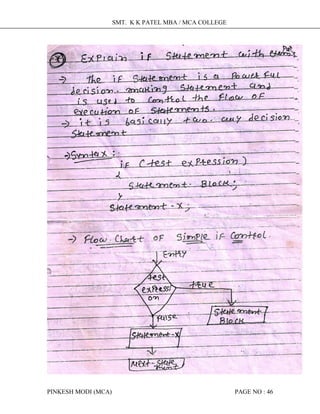 SMT. K K PATEL MBA / MCA COLLEGE
Explain if Statement with
-> The if Statement is a Powerful
decision making Statement and
is used to Control the Flow OF
execution OF Statements.
-> it is basically two way decision
Statement
->Syntax :
if (test expression)
{
Statement Block;
}
Statement-x;
-> Flow Chart OF Simple if Control
Entry
test
expressi
on
true
False
Statement
Block
Statement-x
Next State
ment
PINKESH MODI (MCA)
PAGE NO : 46